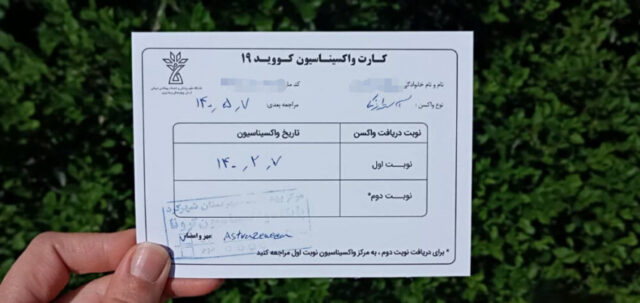 کارت واکسیناسیون کووید ۱۹
نام و نام خانوادگی
کد ملی
نوع واکسن: آسترازنکا
مراجعه بعدی: ۱۴۰۰٫۵٫۷
نوبت دریافت واکسن
تاریخ واکسیناسیون
نوبت اول
۱۴۰۰٫۲٫۷
نوبت دوم*
مهر و امضای
AstraZeneca
* برای دریافت نوبت دوم ، به مرکز واکسیناسیون نوبت اول مراجعه کنید